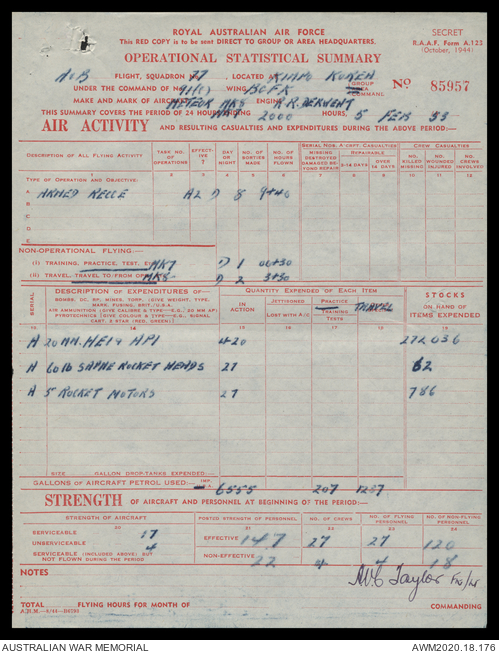 ROYAL AUSTRALIAN AIR FORCE
This RED COPY is to be sent DIRECT TO GROUP OR AREA HEADQUARTERS.
SECRET
R.A.A.F. Form A.123
(October, 1944)
OPERATIONAL STATISTICAL SUMMARY
No B FLIGHT, SQUADRON 77, LOCATED KIMPO KOREA
UNDER THE COMMAND OF No. 91(C) WING BCFK GROUP AREA COMMAND. No 85957
MAKE AND MARK OF AIRCRAFT METEOR MK8 ENGINE R.R. DERWENT
THIS SUMMARY COVERS THE PERIOD OF 24 HOURS ENDING 2000 HOURS, 5 FEB 53
AIR ACTIVITY AND RESULTING CASUALTIES AND EXPENDITURES DURING THE ABOVE PERIOD:—
DESCRIPTION OF ALL FLYING ACTIVITY TASK NO. OF OPERATIONS EFFECTIVE DAY OR NIGHT NO. OF SORTIES MADE NO. OF HOURS FLOWN SERIAL NOS. A/CRFT CASUALTIES CREW CASUALTIES
MISSING DESTROYED DAMAGED BEYOND REPAIR REPAIRABLE 2-14 DAYS OVER 14 DAYS NO. KILLED MISSING NO. WOUNDED INJURED NO. CREWS INVOLVED
1 2 3 4 5 6 7 8 9 10 11 12
TYPE OF OPERATION AND OBJECTIVE.
A ARMED RECCE A2 D 8 9+40
B
C
D
E
NON-OPERATIONAL FLYING:—
(i) TRAINING, PRACTICE, TEST, MK7 D 1 00+30
(ii) TRAVEL, TRAVEL TO/FROM OPS MK8 D 2 3+30
SERIAL DESCRIPTION OF EXPENDITURES OF— QUANTITY EXPENDED OF EACH ITEM STOCKS
BOMBS, DC, RP, MINES, TORP. (GIVE WEIGHT, TYPE, MARK, FUSING, BRIT./U.S.A.
AIR AMMUNITION (GIVE CALIBRE & TYPE—E.G. 20 MM AP)
PYROTECHNICS (GIVE COLOUR & TYPE—E.G. SIGNAL CART. 2 STAR (RED, GREEN).)
IN ACTION JETTISONED LOST WITH A/C PRACTICE TRAINING TESTS TRAVEL ON HAND OF ITEMS EXPENDED
A 20 MM. HEI & API 420 272036
A 60 lb SAPHE ROCKET HEADS 27 62
A 5 ROCKET MOTORS 27 786
SIZE GALLON DROP-TANKS EXPENDED:—
GALLONS OF AIRCRAFT PETROL USED:— IMP. 6555 207 1287
STRENGTH OF AIRCRAFT AND PERSONNEL AT BEGINNING OF THE PERIOD:—
STRENGTH OF AIRCRAFT POSTED STRENGTH OF— NO. OF CREWS NO. OF FLYING PERSONNEL NO. OF NON-FLYING PERSONNEL
SERVICEABLE 17 EFFECTIVE 147 27 27 120
UNSERVICEABLE 4
SERVICEABLE (INCLUDED ABOVE) BUT NOT FLOWN DURING THE PERIOD NON-EFFECTIVE 22 4 4 18
NOTES
TOTAL FLYING HOURS FOR MONTH OF COMMANDING
AUSTRALIAN WAR MEMORIAL AWM2020.18.176